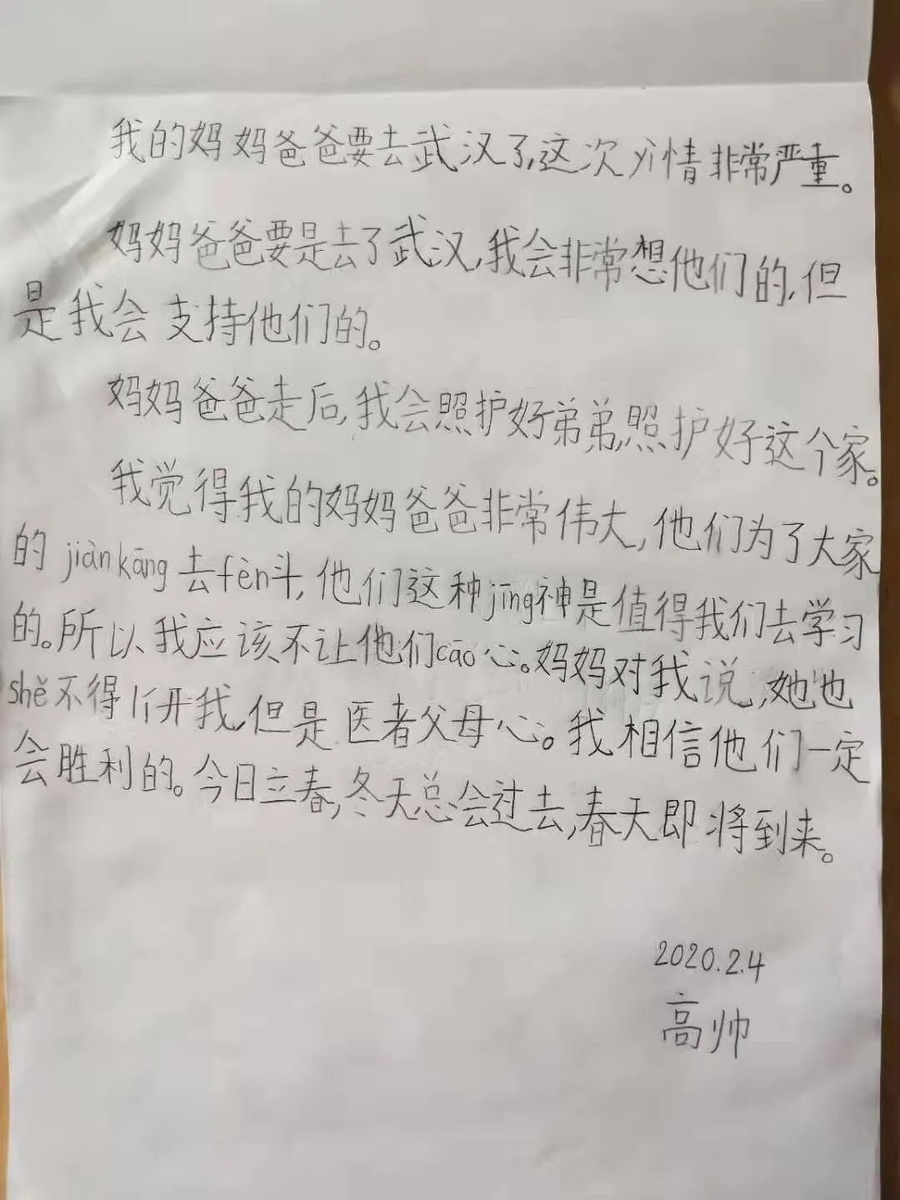 我的妈妈爸爸要去武汉了,这次yì情非常严重。
妈妈爸爸要是去了武汉,我会非常想他们的,但
是我会支持他们的。
妈妈爸爸走后,我会照护好弟弟,照护好这个家。
我觉得我的妈妈爸爸非常伟大,他们为了大家
的jiànkāng去fèn斗,他们这种jīng神是值得我们去学习
的。所以我应该不让他们cāo心。妈妈对我说,她也
shě不得lí开我,但是医者父母心。我相信他们一定
会胜利的。今日立春,冬天总会过去,春天即将到来。
2020.2.4
高帅